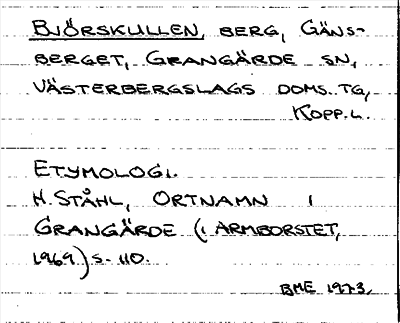 BJÖRSKULLEN, BERG, GÄNS-
BERGET, GRANGÄRDE SN,
VÄSTERBERGSLAGS DOMS. TG,
KOPP.L.
ETYMOLOGI.
H. STÅHL, ORTNAMN I
GRANGÄRDE (I ARMBORSTET,
1969) S. 110.
BME 1973.